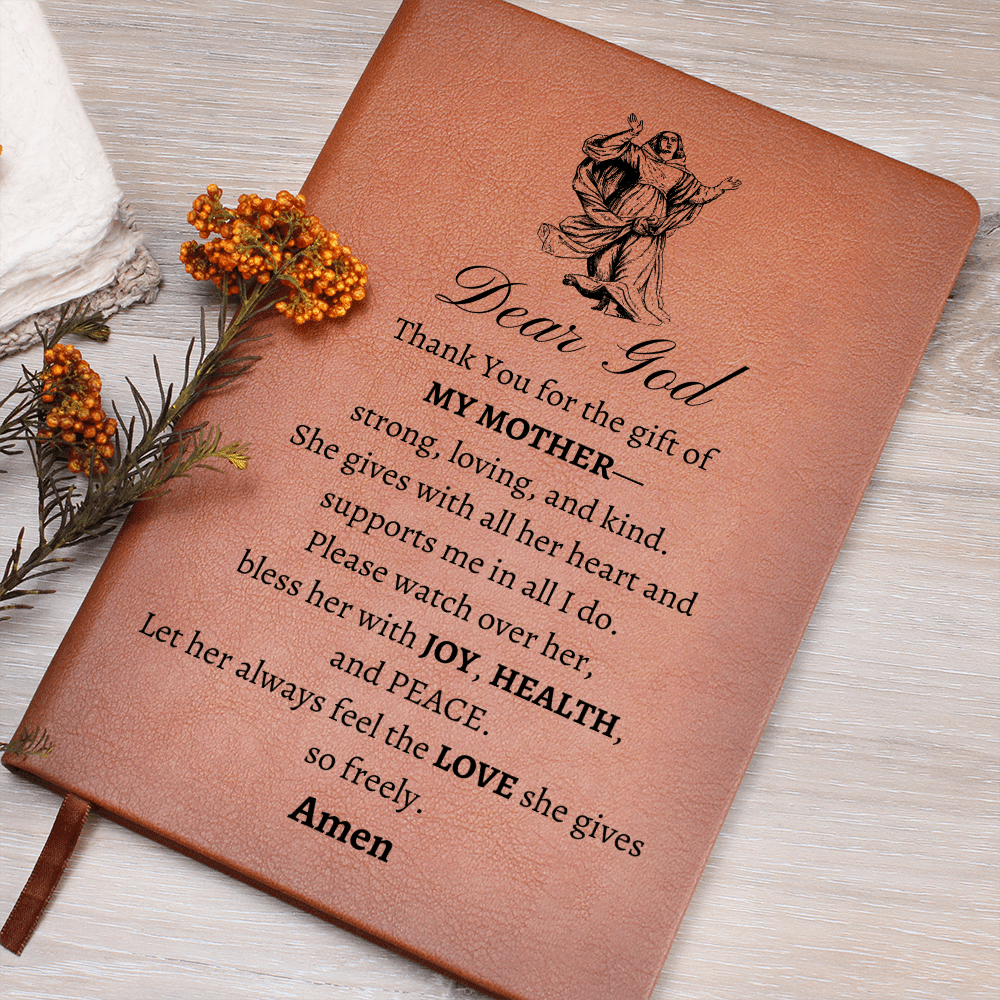 Dear God
Thank You for the gift of
MY MOTHER—
strong, loving, and kind.
She gives with all her heart and
supports me in all I do.
Please watch over her,
bless her with JOY, HEALTH,
and PEACE.
Let her always feel the LOVE she gives
so freely.
Amen